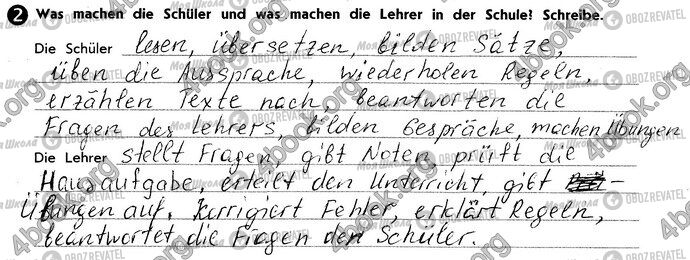 2 Was machen die Schüler und was machen die Lehrer in der Schule? Schreibe.
Die Schüler lesen, übersetzen, bilden Sätze,
üben die Aussprache, wiederholen Regeln,
erzählen Texte nach, beantworten die
Fragen des Lehrers, bilden Gespräche, machen Übungen
Die Lehrer stellt Fragen, gibt Noten prüft die
Hausaufgabe, erteilt den Unterricht, gibt -
Übungen auf. Korrigiert Fehler, erklärt Regeln,
beantwortet die Fragen den Schüler.